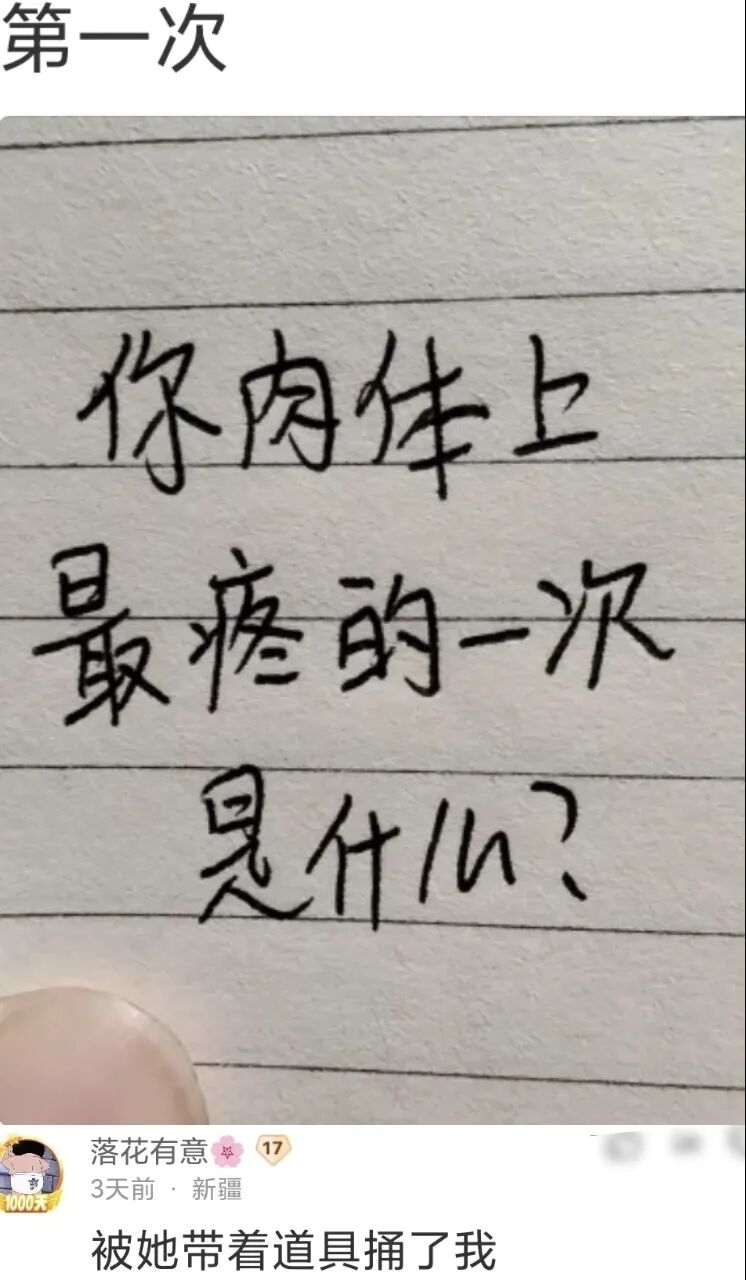 第一次
你肉体上
最疼的一次
是什么?
落花有意🌸 17
3天前 · 新疆
1000天
被她带着道具捅了我